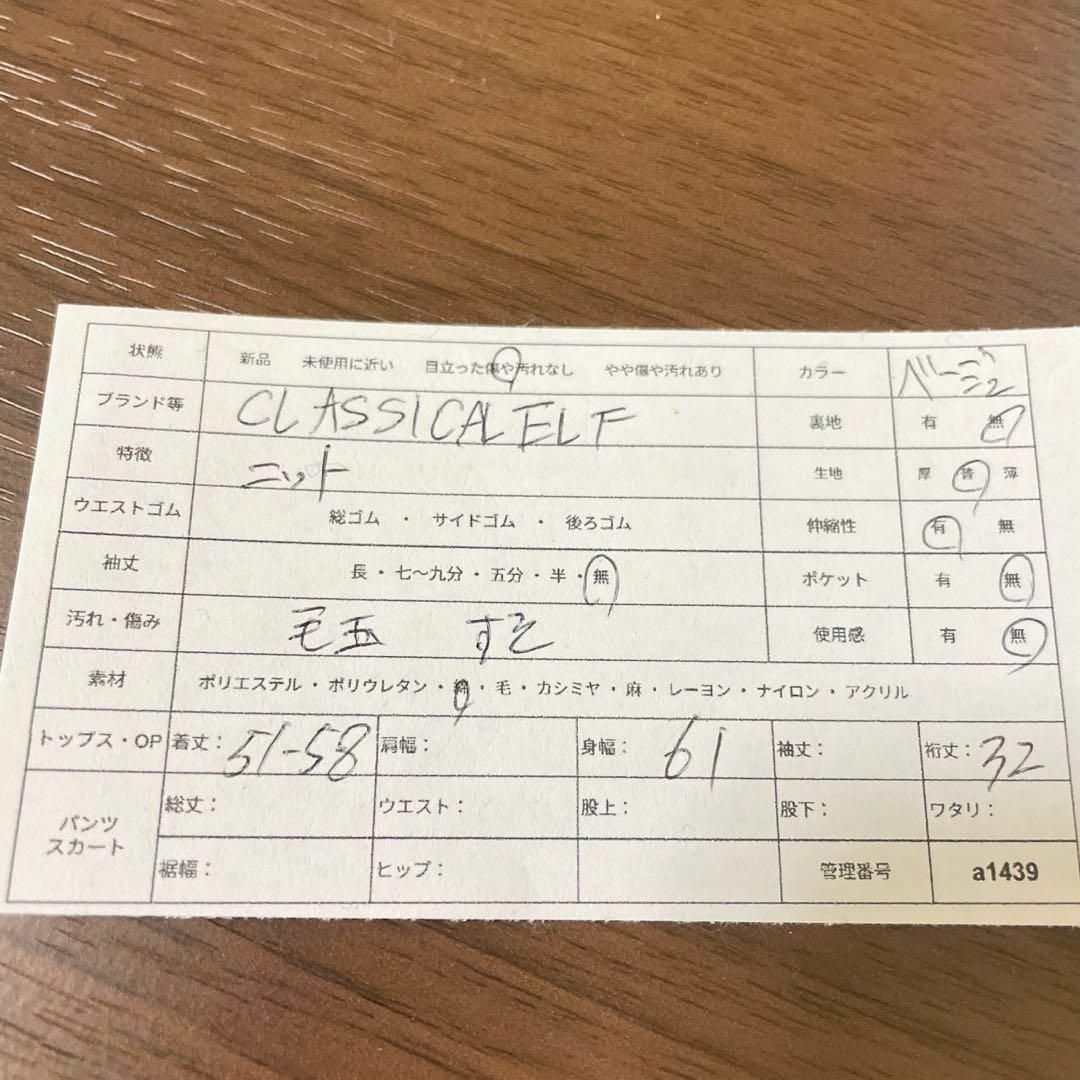 状態 新品 未使用に近い 目立った傷や汚れなし やや傷や汚れあり カラー ベージュ
ブランド等 CLASSICAL ELF 裏地 有 無
特徴 ニット 生地 厚 普 薄
ウエストゴム 総ゴム ・ サイドゴム ・ 後ろゴム 伸縮性 有 無
袖丈 長・七〜九分・五分・半・無 ポケット 有 無
汚れ・傷み 毛玉 すそ 使用感 有 無
素材 ポリエステル・ポリウレタン・綿・毛・カシミヤ・麻・レーヨン・ナイロン・アクリル
トップス・OP 着丈: 51-58 肩幅: 身幅: 61 袖丈: 裄丈: 32
パンツ
スカート
総丈: ウエスト: 股上: 股下: ワタリ:
裾幅: ヒップ: 管理番号 a1439